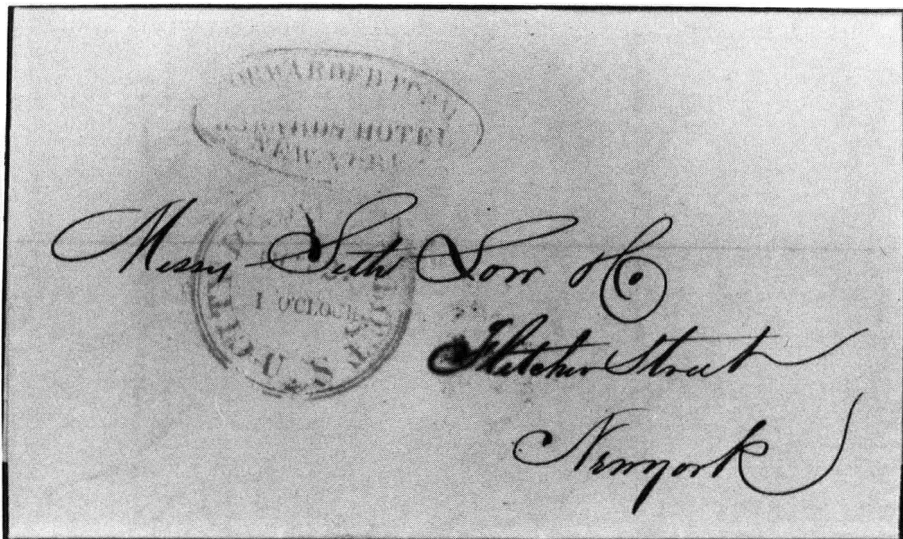 FORWARDED FROM
HOTEL
NEW YORK
U.S. CITY DESPATCH
1 O'CLOCK
Messrs Seth Low & Co
Fletcher Street
Newyork